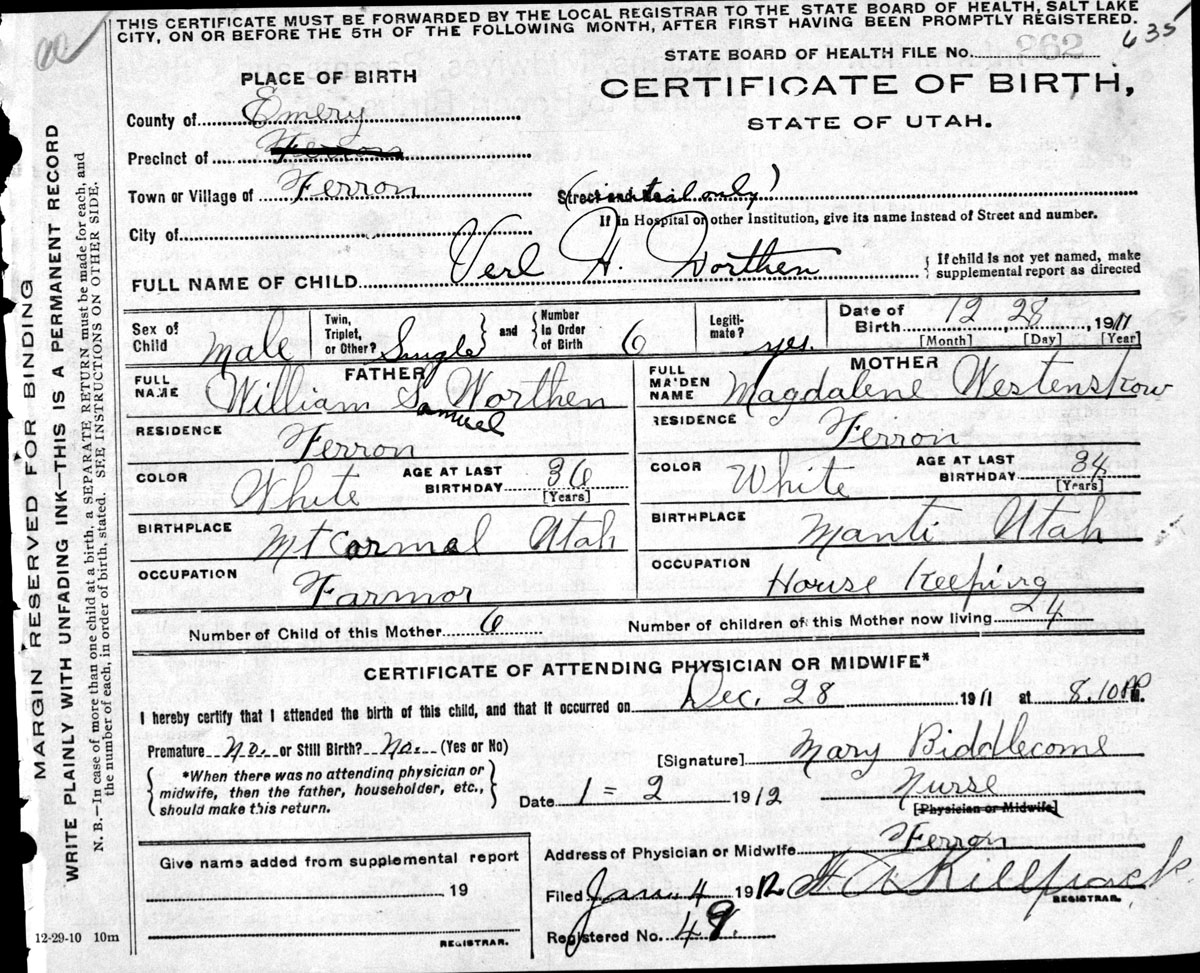 THIS CERTIFICATE MUST BE FORWARDED BY THE LOCAL REGISTRAR TO THE STATE BOARD OF HEALTH, SALT LAKE
CITY, ON OR BEFORE THE 5TH OF THE FOLLOWING MONTH, AFTER FIRST HAVING BEEN PROMPTLY REGISTERED.
635
STATE BOARD OF HEALTH FILE No. 262
PLACE OF BIRTH
CERTIFICATE OF BIRTH,
STATE OF UTAH.
County of Emery
Precinct of Ferron
Town or Village of Ferron
Street and
only)
If in Hospital or other Institution, give its name instead of Street and number.
City of
FULL NAME OF CHILD Verl H. Worthen
{ If child is not yet named, make
supplemental report as directed
Sex of Child Male
Twin, Triplet, or Other? Single } and { Number in Order of Birth 6
Legitimate? yes.
Date of Birth 12, 28, 1911
[Month] [Day] [Year]
FATHER
FULL NAME William S. Worthen
Samuel
RESIDENCE Ferron
COLOR White AGE AT LAST BIRTHDAY 36 [Years]
BIRTHPLACE Mt Carmel Utah
OCCUPATION Farmor
MOTHER
FULL MAIDEN NAME Magdalene Westenskow
RESIDENCE Ferron
COLOR White AGE AT LAST BIRTHDAY 34 [Years]
BIRTHPLACE Manti Utah
OCCUPATION House Keeping
Number of Child of this Mother 6
Number of children of this Mother now living 4
CERTIFICATE OF ATTENDING PHYSICIAN OR MIDWIFE*
I hereby certify that I attended the birth of this child, and that it occurred on Dec. 28 1911 at 8.10 P.M.
Premature No. or Still Birth? No. (Yes or No)
{ *When there was no attending physician or
midwife, then the father, householder, etc.,
should make this return. }
[Signature] Mary Biddlecome
Date 1 = 2 1912
Nurse
[Physician or Midwife]
Address of Physician or Midwife Ferron
Give name added from supplemental report
19
REGISTRAR.
Filed Jan. 4 1912 Killpack
REGISTRAR.
Registered No. 49.
12-29-10 10m
MARGIN RESERVED FOR BINDING
WRITE PLAINLY WITH UNFADING INK—THIS IS A PERMANENT RECORD
N. B.—In case of more than one child at a birth, a SEPARATE RETURN must be made for each, and
the number of each, in order of birth, stated. SEE INSTRUCTIONS ON OTHER SIDE.